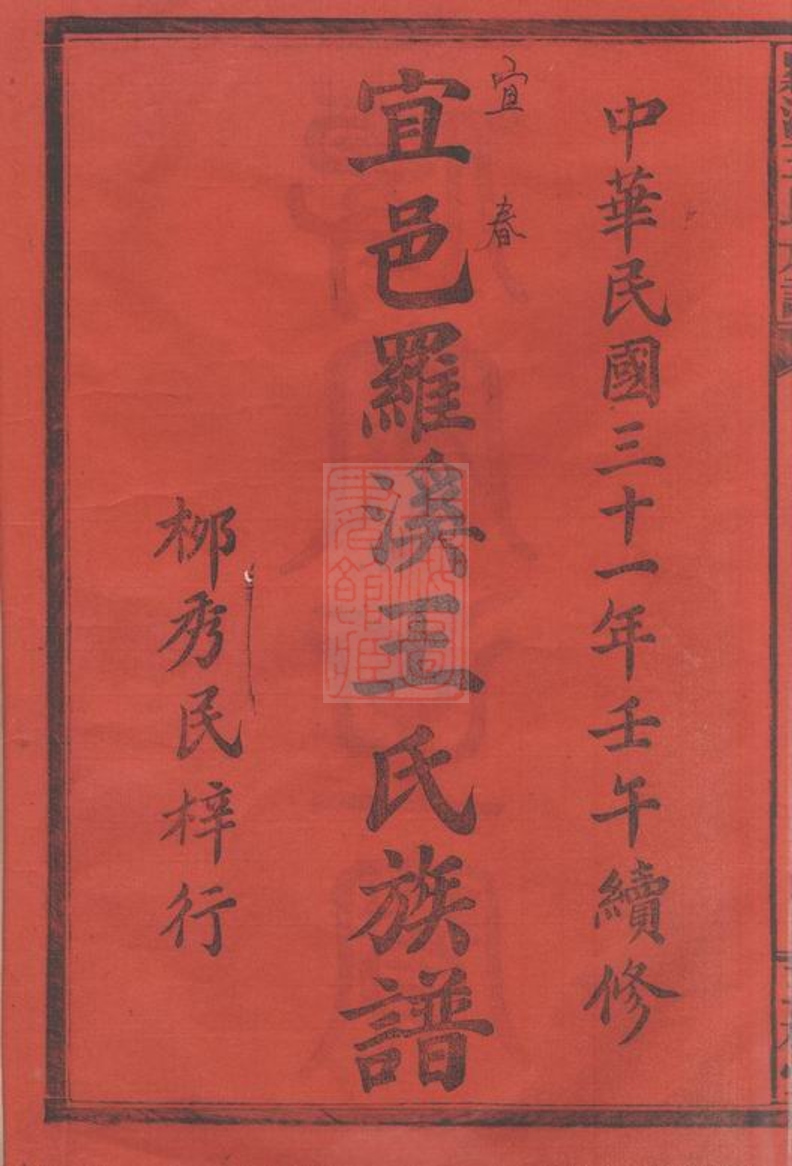 中華民國三十一年壬午續修
宜春
宜邑羅溪王氏族譜
柳秀民梓行